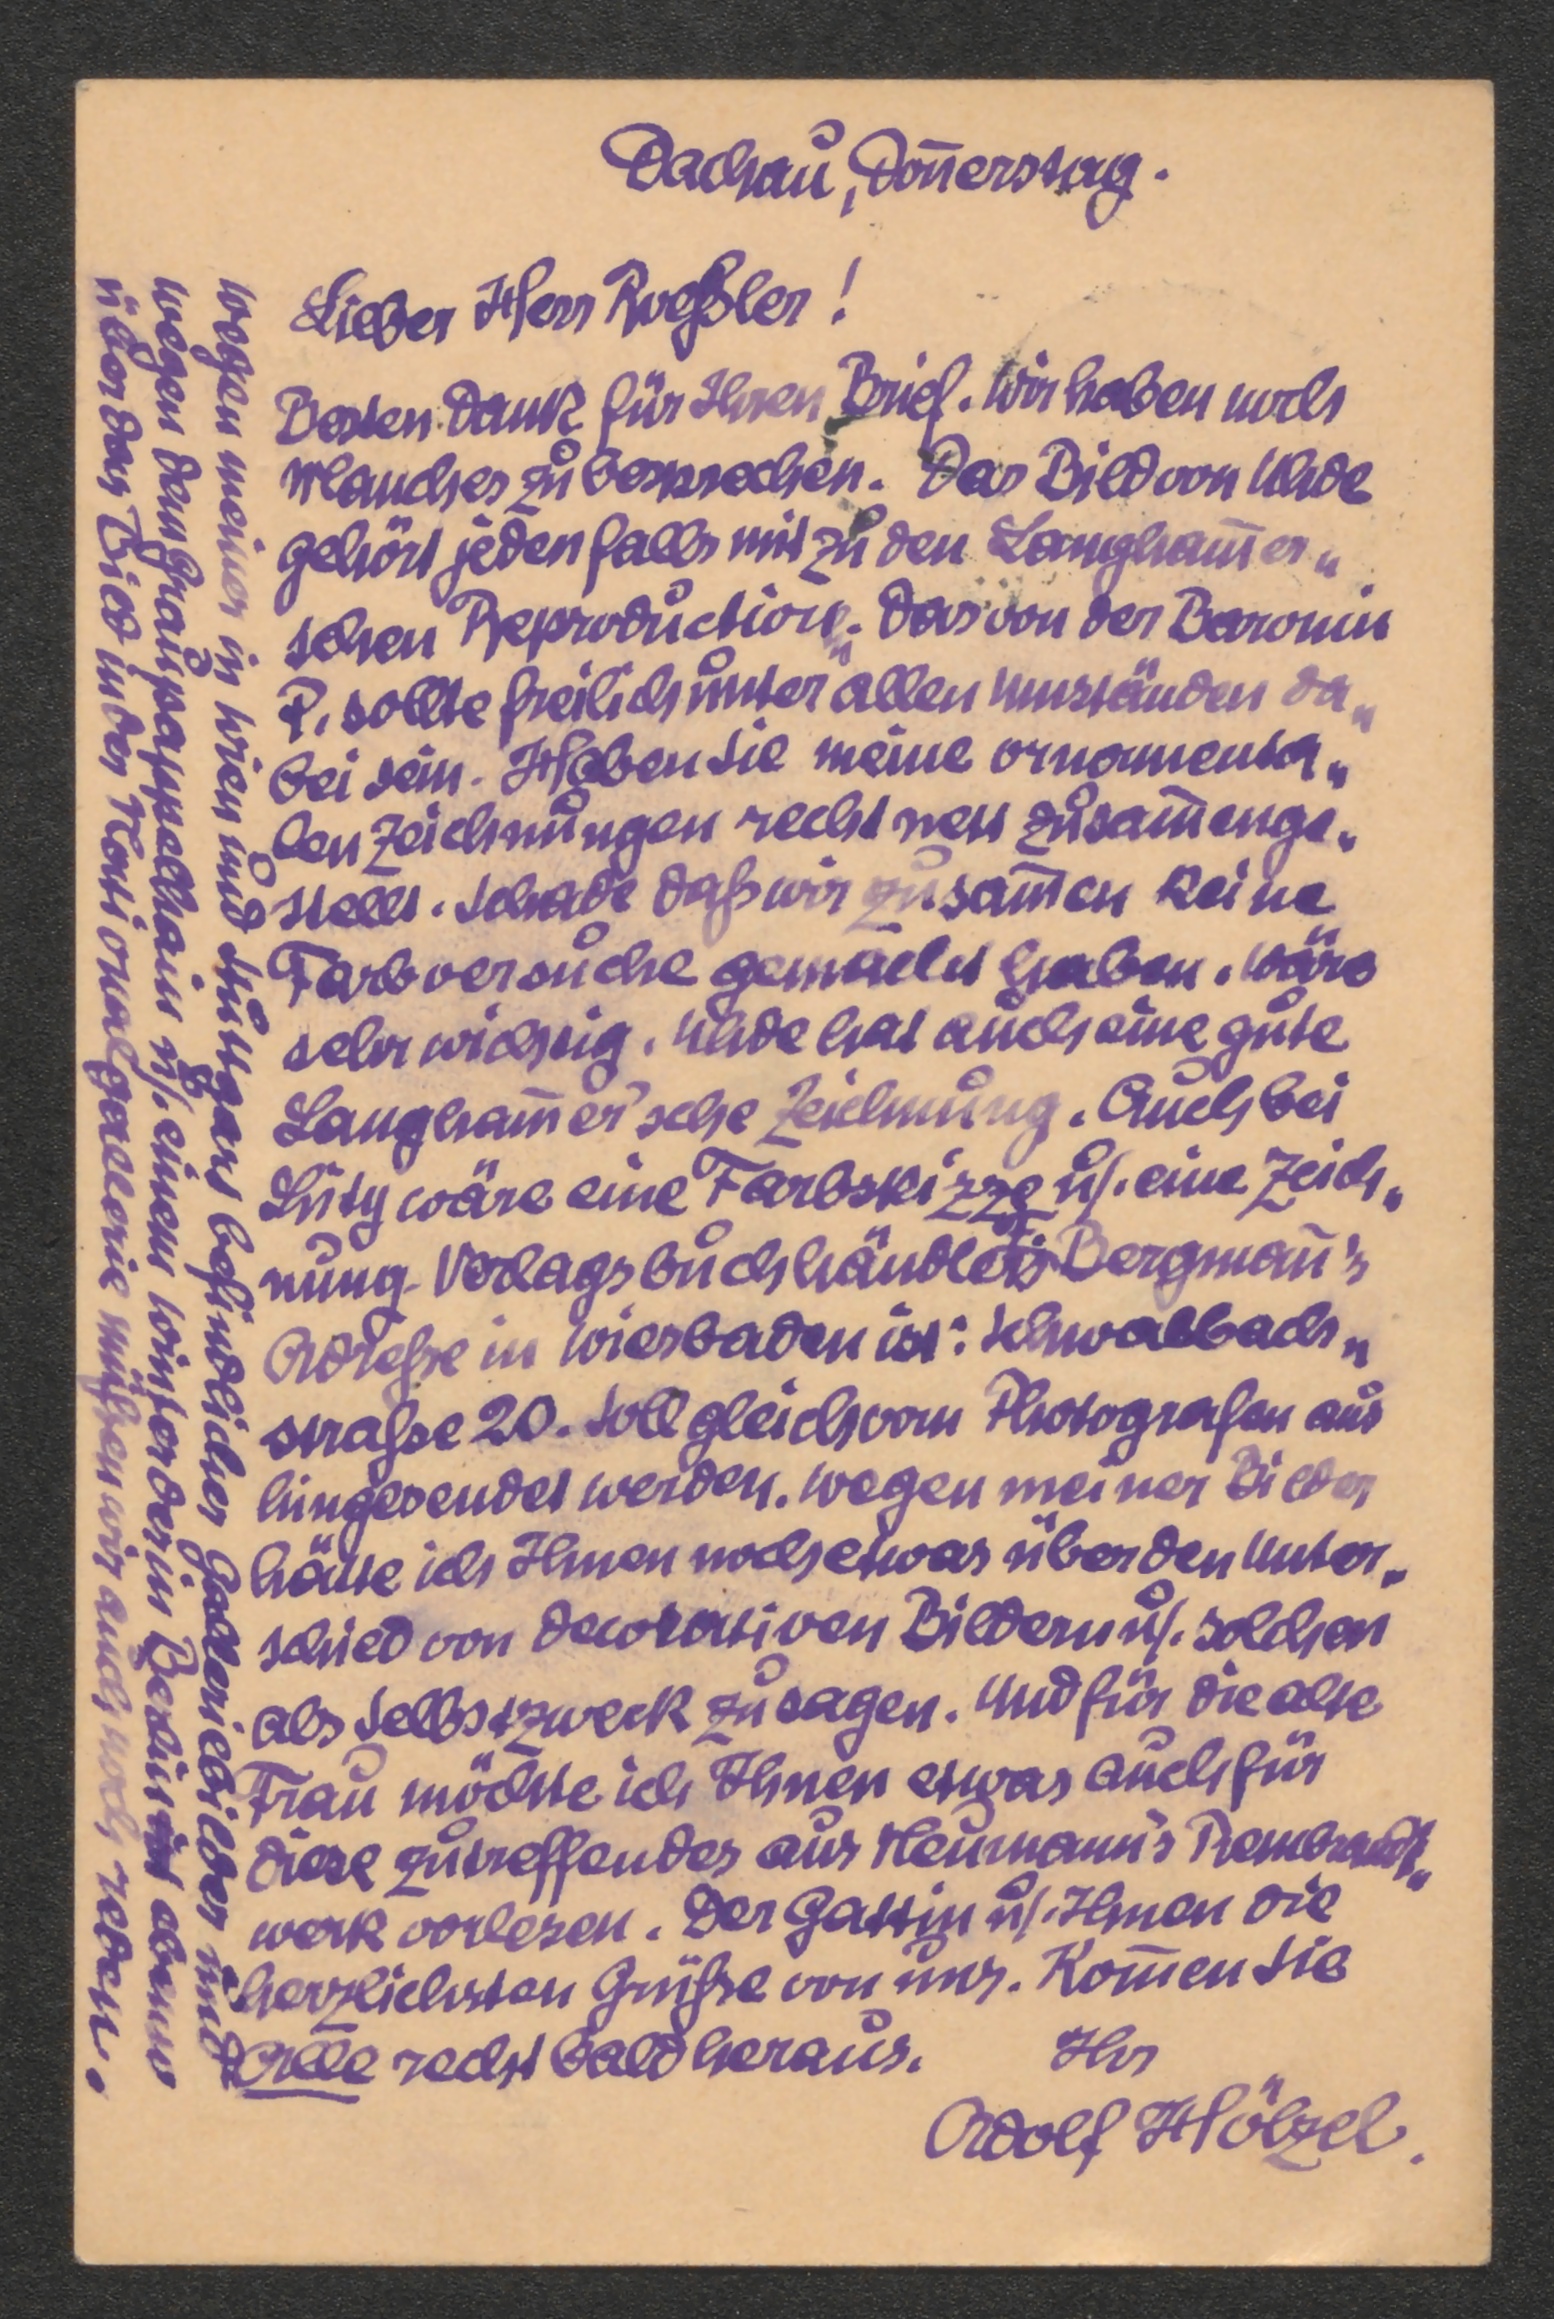 Dachau, Doñerstag.
Lieber Herr Roeßler!
Besten Dank für Ihren Brief. Wir haben noch
Manches zu besprechen. Das Bild von Uhde
gehört jedenfalls mit zu den Langham̄er„
schen Reproduction„. Das von der Baronin
P. sollte freilich unter allen Umständen da„
bei sein. Haben Sie meine ornamenta„
len Zeichnungen recht nett zusam̄enge„
stellt. Schade daß wir zusam̄en keine
Farbversuche gemacht haben. Wäre
sehr wichtig. Uhde hat auch eine gute
Langham̄er'sche Zeichnung. Auch bei
Lüty wäre eine Farbskizze u/. eine Zeich„
nung. Verlagsbuchhändlers Bergmañ's
Adreße in Wiesbaden ist: Schwalbach„
straße 20. Soll gleich vom Photografen aus
hingesendet werden. Wegen meiner Bilder
hätte ich Ihnen noch etwas über den Unter„
schied von decorativen Bildern u/. solchen
als Selbstzweck zu sagen. Und für die alte
Frau möchte ich Ihnen etwas auch für
diese zutreffendes aus Neumann's Rembrandt„
werk vorlesen. Der Gattin u/. Ihnen die
herzlichsten Grüße von uns. Kom̄en Sie
Alle recht bald heraus. Ihr
Adolf Hölzel.
wegen meiner in Wien und Stuttgart befindlicher Galleriebilder und
wegen dem Graupappelhain u/. einem Winter der in Berlin ist ebenso
über das Bild in der Nationalgallerie müßen wir auch noch reden.